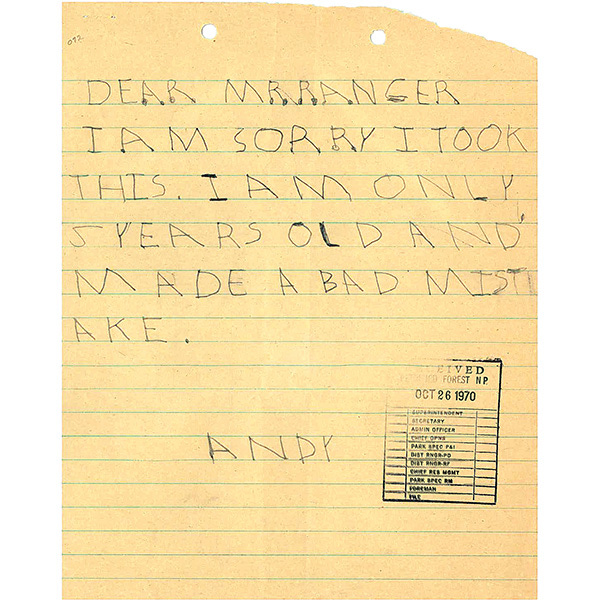 072
DEAR MR. RANGER
I AM SORRY I TOOK
THIS. I AM ONLY
5 YEARS OLD AND
MADE A BAD MIST
AKE.
ANDY
FOREST N.P.
OCT 26 1970
SUPERINTENDENT
SECRETARY
ADMIN OFFICER
CHIEF OPNS
PARK SPEC P&I
DIST RNGR-PD
DIST RNGR-RF
CHIEF RES MGMT
PARK SPEC RM
FOREMAN
FILE